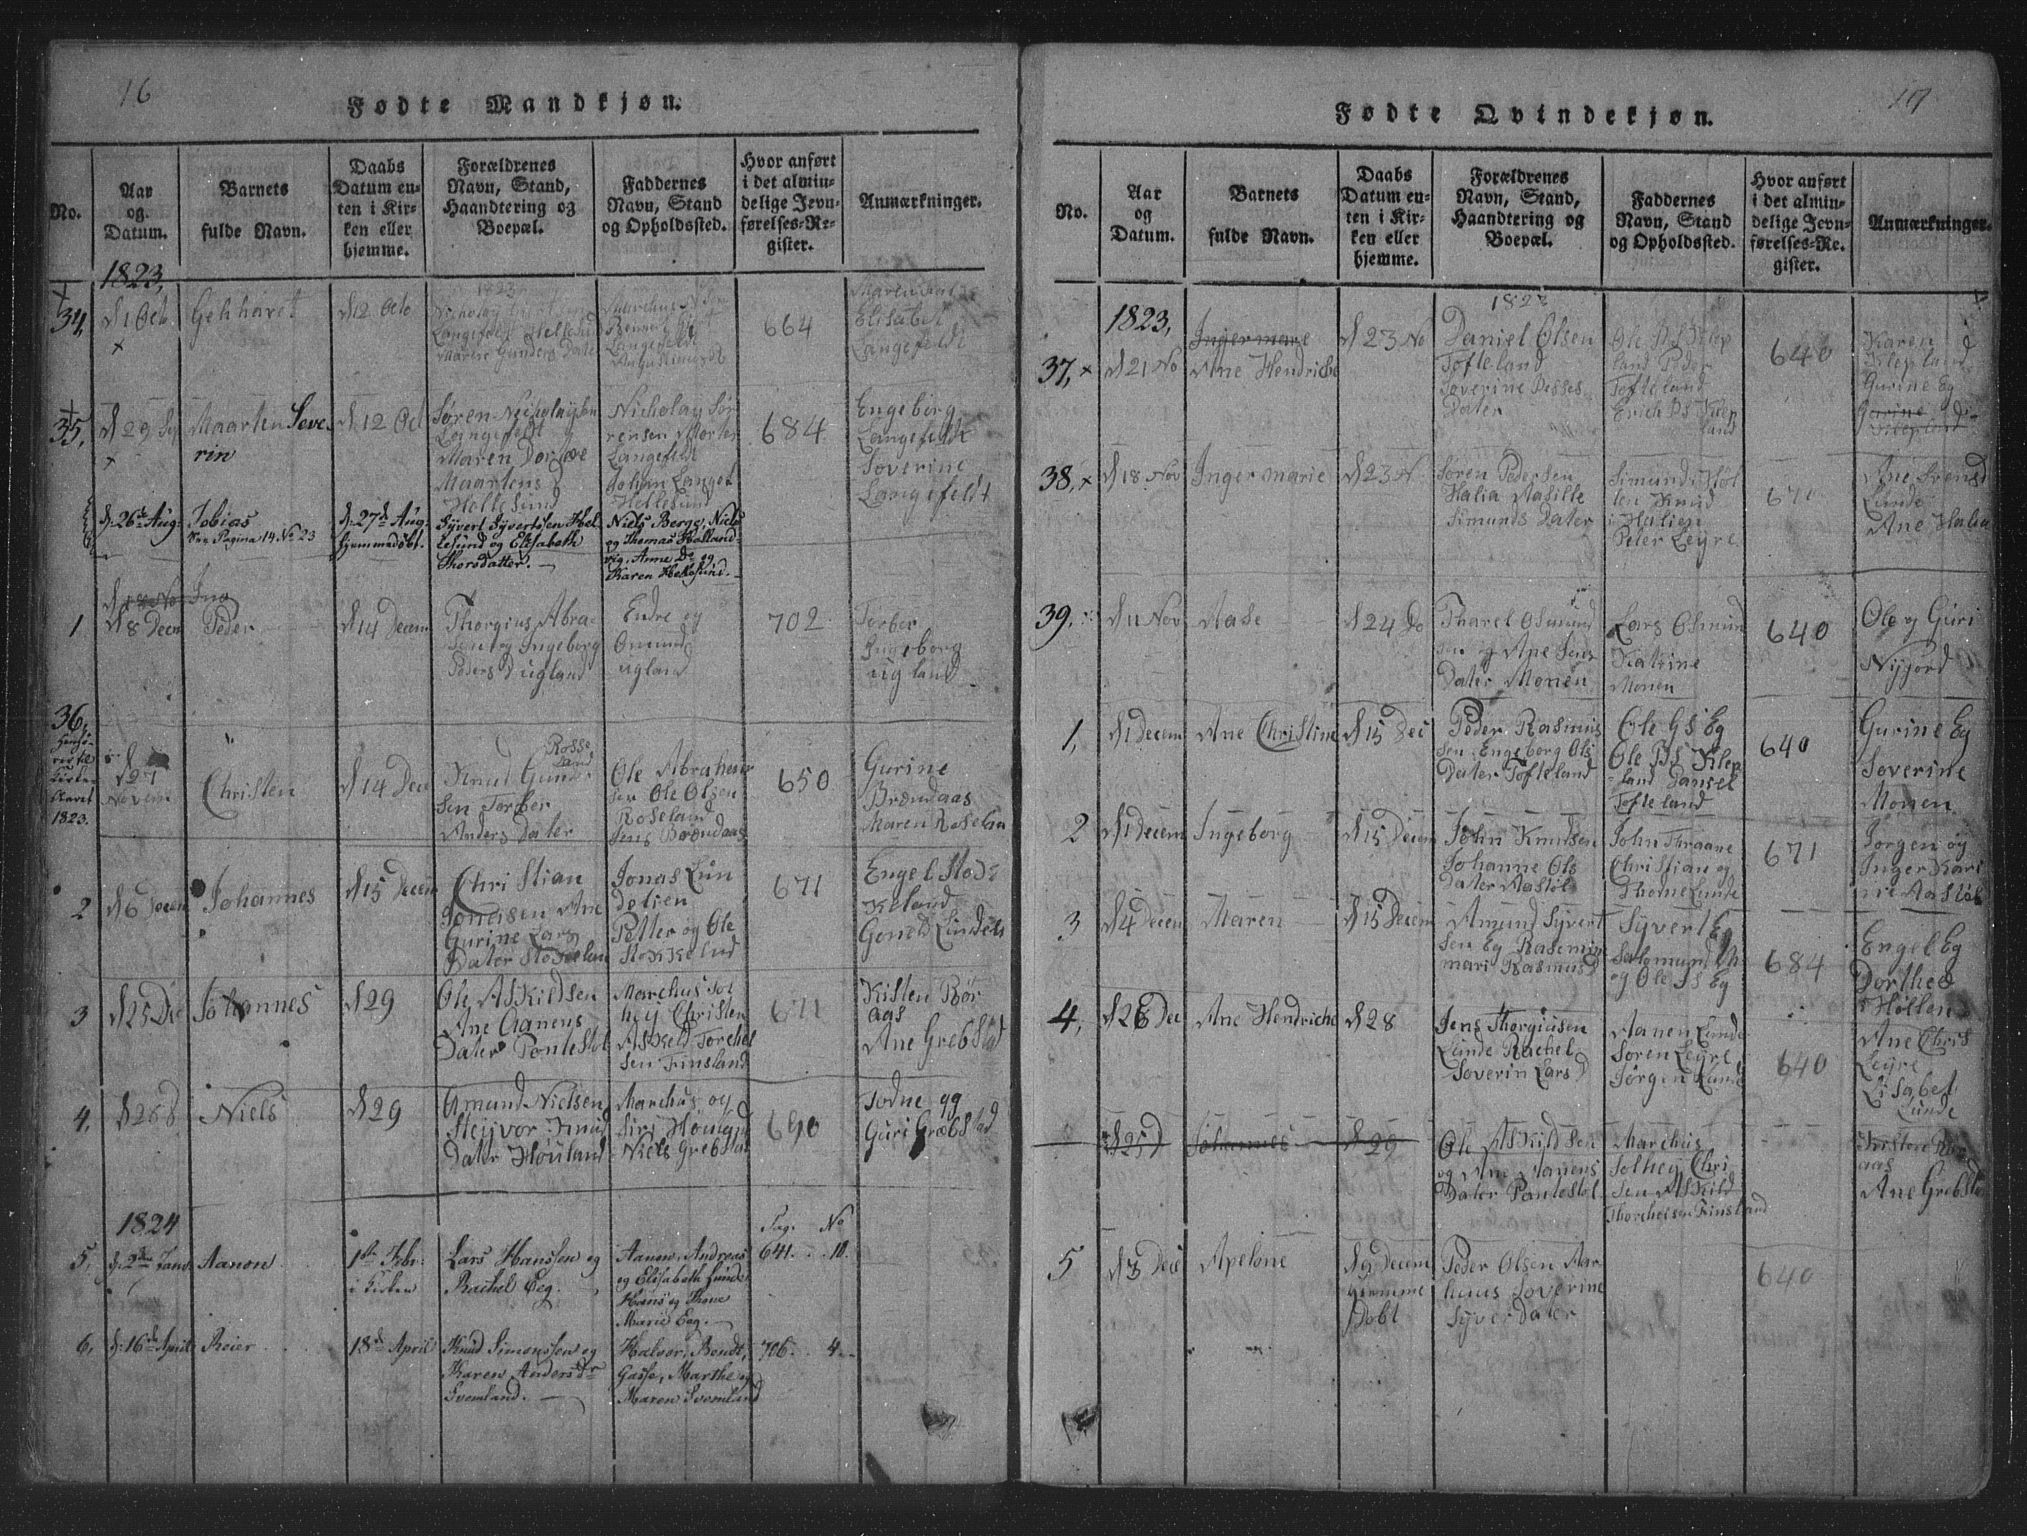 16
Fødte Mandkjøn.
No.
Aar
og
Datum.
Barnets
fulde Navn.
Daabs
Datum en-
ten i Kir-
ken eller
hjemme.
Forældrenes
Navn, Stand,
Haandtering og
Boepæl.
Faddernes
Navn, Stand
og Opholdssted.
Hvor anført
i det almin-
delige Jevn-
førelses-Re-
gister.
Anmærkninger.
1823,
34,
d 1 Octo
Gehhart
d 12 Octo
Nicholay
Langefelt Hellesund
Maren Gunders Dater
Langefeldt
664
Maren
Elisabet
Langefeldt
35,
d 29 Sep
Maarten Seve
rin
d 12 Oct
Søren Nicholaysen
Langefeldt
Maren Dorthe
Maartens
Hellesund
Nicholay Sø
rensen Morten
Langefeldt
Johan Langef
Hellesund
684
Engeborg
Langefeldt
Soverine
Langefeldt
d: 26de Aug:
Tobias
See Pagina 14 No 23
d: 27de Aug:
hjemmedøbt.
Syvert Syvertssen Hel-
lesund og Elisabeth
Thorsdatter.
Niels Berge, Niels
og Thomas Holland-
vig, Anne Do og
Karen Hellesund.
1
d 8 Decem
Peder
d 14 Decem
Thorgius Abra
sen og Ingeborg
Peders D ugland
Endre og
Omund
ugland
702
Torber
Ingeborg
ugland
36,
1823.
d 27
Novem
Christen
d 14 Dec
Rosse
land
Knut Gunder
sen Torber
Anders dater
Ole Abrahem
sen Ole Olsen
Roseland
Jens Brøndaas
650
Gurine
Brøndaas
Maren Roselan
2
d 6 Decem
Johannes
d 15 Decem
Christian
Jonasen Ane
Gurine Lars
Dater Stokkelan
Jonas Lun
delien
Petter og Ole
Stokkelud
671
Engel Stok
keland
Lundeli
3
d 25 De
Johannes
d 29
Ole Askildsen
Ane Aanens
Dater Pontestøl
Marchus Sol
hey Christen
Askeld Torchel
sen Finsland
671
Kisten Rør
aas
Ane Grebstad
4,
d 26 d
Niels
d 29
Amund Nielsen
Steyvor Knud
Dater Houland
Marchus og
Siri Hougn
Niels Grebstad
690
Todne og
Guri Grebstad
1824
Pag. No
5,
d: 2den Janv.
Aanon
1ste Febr.
i Kirken
Lars Hanssen og
Rachel Eeg.
Aanon, Andreas
og Elisabeth Lunde
Hans og Thone
Marie Eeg.
641. 10.
6,
d: 16de April
Reier
18de April
Knud Simonssen og
Karen Andersdr
Svomland.
Halvor, Bendt,
Gasse, Marthe og
Maren Svomland
706. 4.
17
Fødte Qvindekjøn.
No.
Aar
og
Datum.
Barnets
fulde Navn.
Daabs
Datum en-
ten i Kir-
ken eller
hjemme.
Forældrenes
Navn, Stand,
Haandtering og
Boepæl.
Faddernes
Navn, Stand
og Opholdssted.
Hvor anført
i det almin-
delige Jevn-
førelses-Re-
gister.
Anmærkninger.
1823,
37,
d 21 No
Ingermarie
Ane Hendriche
d 23 No
Daniel Olsen
Tofteland
Soverine Pesses
Dater
Ole Ps Klep
land Peder
Tofteland
Erich Ps Klep
land
640
Karen
Klepland
Gurine Eg
Gurine
Klepland
38,
d 18 Nov
Ingermarie
d 23 N
Søren Pedersen
Halia Aasille
Simunds Dater
Simund Høl
len Knud
i Halien
Peter Leyre
671
Ane Svends
Lunde
Ane Halia
39,
d 11 Nov
Aase
d 24 Do
Tharel Osmund
sen og Ane Jens
Dater Monen
Lars Osmun
Katrine
Monen
640
Ole og Guri
Nygjord
1,
d 1 Decem
Ane Christine
d 15 Dec
Peder Rasmus
sen Engeborg Ols
Dater Tofteland
Ole Gs Eg
Ole Ps Klep
land Daniel
Tofteland
640
Gurine Eg
Soverine
Monen
2
d 1 Decem
Ingeborg
d 15 Decem
John Knudsen
Johanne Ols
Dater Aastøl
John Thraane
Christian og
Thorne Lunde
671
Jorgen og
Inger Kari
ne Aastøl
3
d 4 Decem
Maren
d 15 Decem
Amund Syvert
sen Eg Rasemin
mari Rasmus D
Syvert Eg
Salomund
og Ole Ss Eg
684
Engel Eg
Dorthea
Høllen
4,
d 26 Dec
Ane Hendriche
d 28
Jens Thorgiusen
Lunde Rachel
Soverin Lars D
Aanen Lunde
Soren Leyre
Jørgen Lunde
640
Ane Chris
Leyre
Lisabet
Lunde
d 25 D
Johannes
d 29
Ole Askildsen
og Ane Aanens
Dater Pontestøl
Marchus
Solhey Chri
sen Askild
Thorchelsen Finsland
Kisten Rør
aas
Ane Grebsta
5
d 3 Dec
Apelone
d 9 Decem
hjemme
Døbt
Peder Olsen Aar
huus Soverine
Syver Dater
640